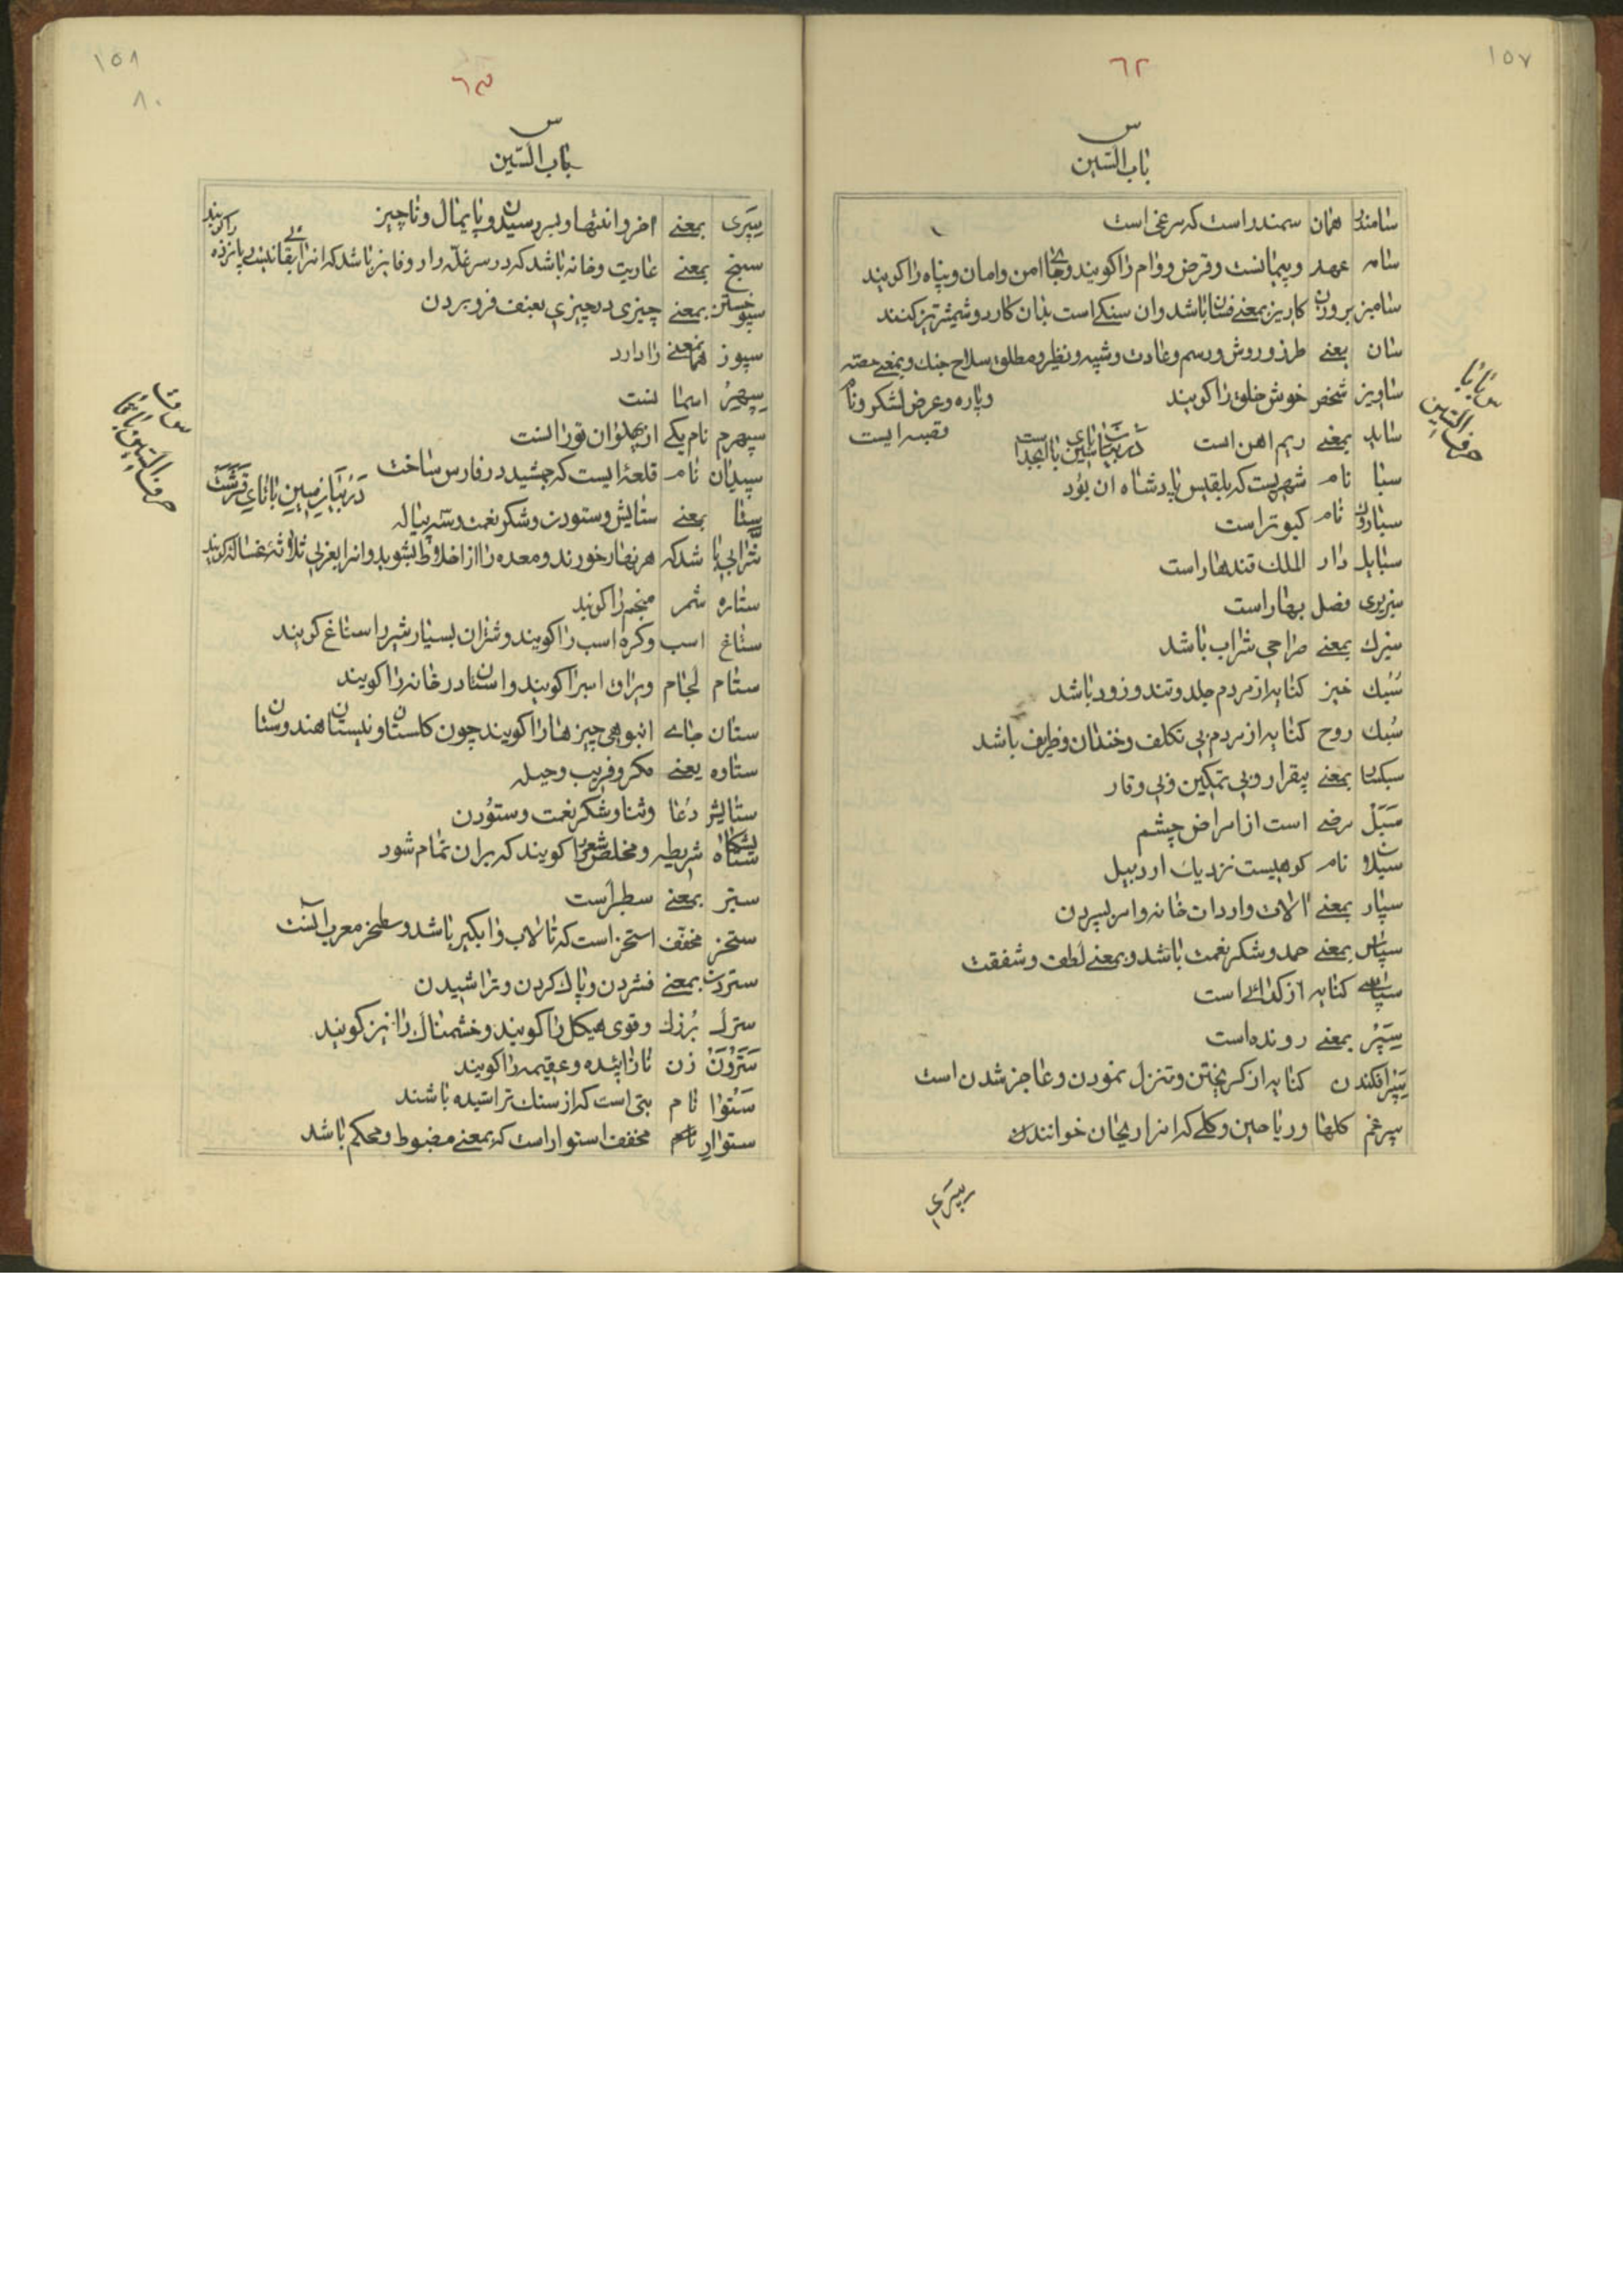 ١٥٧
٦٢
س
باب السّين
سامندر همان سمندر است که مرغی است
سامه عهد و پیمانست و قرض و وام را کویند و بجای امن و امان و پناه را کویند
سامیز برون کاریز بمعنی فسان باشد و ان سنکی است بدان کارد و شمشیر تیز کنند
سان بعنی طرز و روش و رسم و عادت و شبیه و نظیر و مطلق سلاح جنك و بمعنی حصّه
ساویز شخص خوش خلق را کویند
و پاره و عرض لشکر و نام
قصبه ایست
ساید بمعنی ریم اهن است
در بیان سین با بای ابجد است
س با با
حرف السّین
سبا نام شهریست که بلقیس پادشاه ان بود
سبارون نام کبوتر است
سبابل دار الملك قندهار است
سبزپری فصل بهار است
سبزك بمعنی صراحی شراب باشد
سُبُك خیز کنایه از مردم جلد و تند و زود باشد
سُبك روح کنایه از مردم بی تکلف و خندان و ظریف باشد
سبکسا بمعنی بیقرار و بی تمکین و بی وقار
سَبَل مرضی است از امراض چشم
سبلان نام کوهیست نزدیك اردبیل
سپار بمعنی الات و اردات خانه و امر بسپردن
سپاس بمعنی حمد و شکر نعمت باشد و بمعنی لطف و شفقت
سپاسی کنایه از کدائی است
سِپَر بمعنی رونده است
سِپَر افکندن کنایه از کریختن و تنزل نمودن و عاجز شدن است
سپرغم کلها و ریاحین و کلی که انرا ریحان خوانند
سپری
١٥٨
٨٠
٦٣
س
باب السّین
سِپَری بمعنی اخر و انتها و بسر رسیدن و پایمال و ناچیز
سپنج بمعنی عاریت و خانه باشد که در سر غلّه زار و فالیز باشد
را کویند
سپوختن بمعنی چیزی در چیزی بعنف فرو بردن
سپوز همانمعنی را دارد
سِپِهر اسمانست
سپهرم نام یکی از پهلوان تورانست
سپیدان نام قلعهٔ ایست که جمشید در فارس ساخت
در بیان سین با تای قرشت
س ت
حرف السّین با تا
ستا بمعنی ستایش و ستودن و شکر نعمت و سه پیاله
شرابی باشد که هر نهار خورند و معده را از اخلاط بشوید و انرا بعربی ثلاثهٔ غساله کویند
ستاره شمر منجم را کویند
ستاغ اسب و کره اسب را کویند و شتران بسیار شیر را ستاغ کویند
ستام لجام و یراق اسبرا کویند و استان در خانه را کویند
ستان جای انبوهی چیزها را کویند چون کلستان و نیستان هندوستان
ستاوه بعنی مکر و فریب و حیله
ستایش دُعا و ثنا و شکر نعمت و ستودن
شریطه و مخلص شعر را کویند که بران تمام شود
ستبر بمعنی سطبر است
ستخر مخفّف استخر است که تالاب و ابکیر باشد و سطخر معرب انست
ستردن بمعنی فشردن و پاك کردن و تراشیدن
سترك بُزرك و قوی هیکل را کویند و خشمناك را نیز کویند
سَتَروَن زن نازاینده و عقیمه را کویند
سَتُوا نام بتی است که از سنك تراشیده باشند
ستوار مخفف استوار است که بمعنی مضبوط و محکم باشد